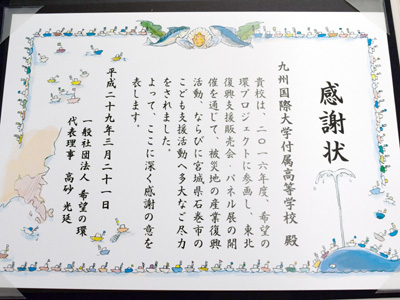 感謝状
九州国際大学付属高等学校 殿
貴校は、二〇一六年度、希望の
環プロジェクトに参画し、東北
復興支援販売会・パネル展の開
催を通じて、被災地の産業復興
活動、ならびに宮城県石巻市の
こども支援活動へ多大なご尽力
をされました。
よって、ここに深く感謝の意を
表します。
平成二十九年三月二十一日
一般社団法人 希望の環
代表理事 高砂 光延